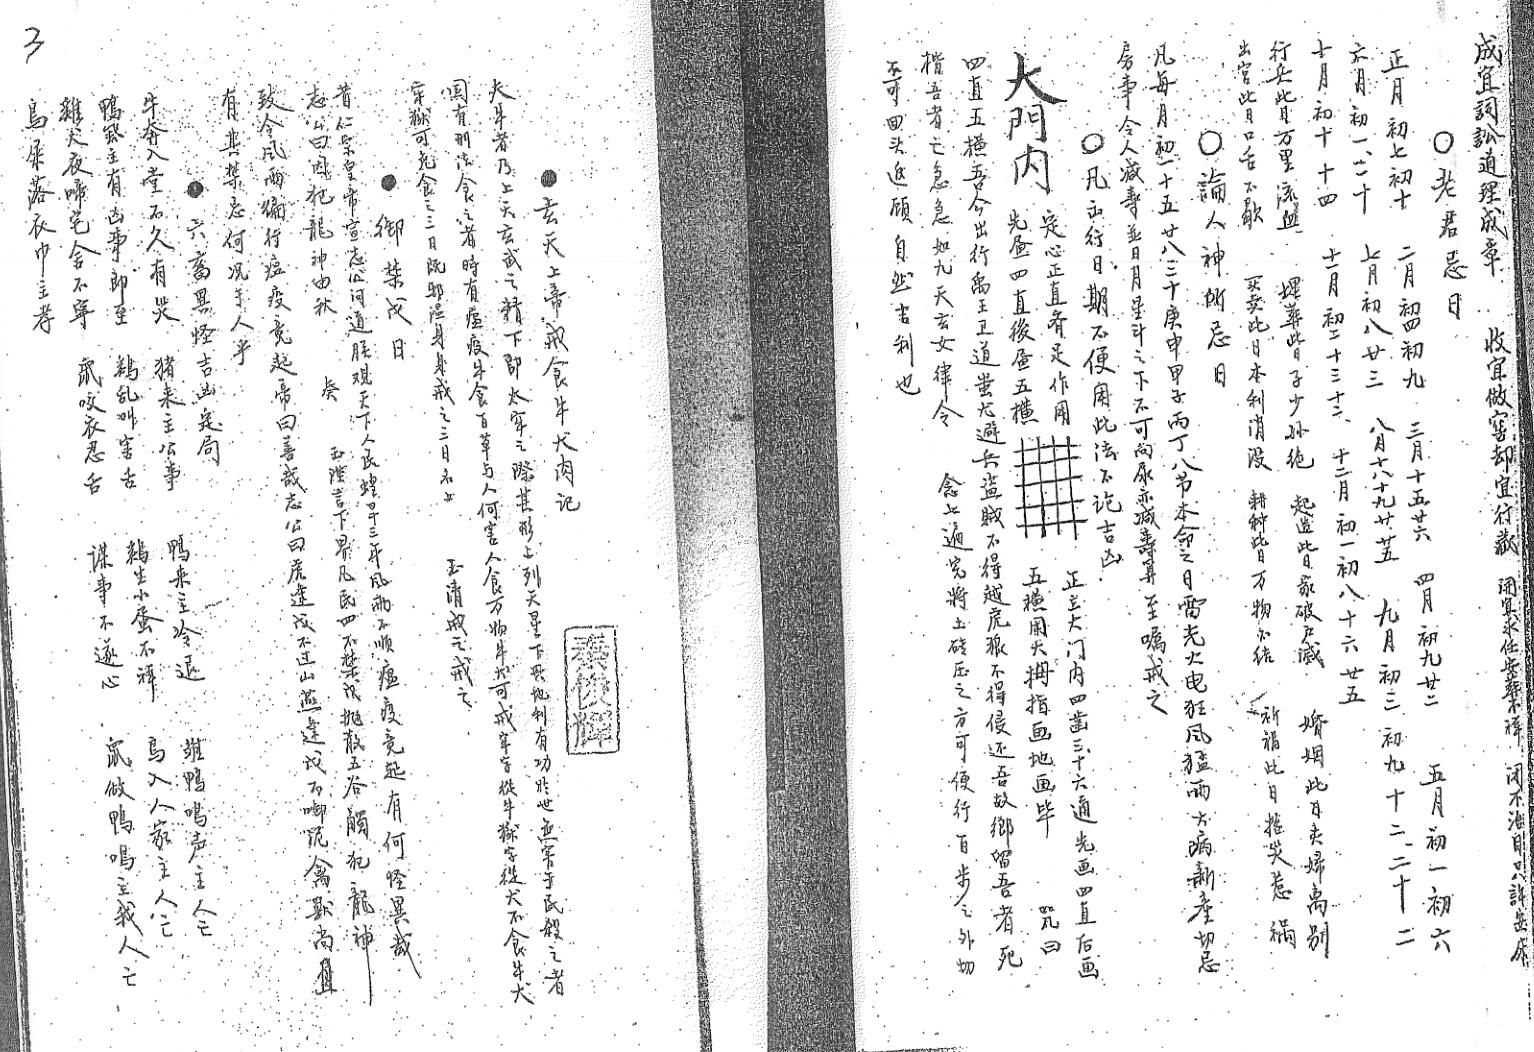 成宜詞訟道理成章 收宜做窖却宜行獄
○老君忌日
正月初七初十 二月初四初九 三月十五廿六 四月初九廿二 五月初一初六
六月初一、二十 七月初八廿三 八月十八十九廿五 九月初三初九十二、二十二
十月初十十四 十一月初二十三十二、十二月初一初八十六廿五
行兵此日万里流血 埋葬此日子少孙绝 起造此日家破尸滅 婚姻此日夫婦离别
出官此日口舌不歇 买卖此日本利消没 耕种此日万物不结 祈福此日招災惹禍
○論人神所忌日
凡每月初一十五廿八三十庚申甲子丙丁八节本命之日雷光火电狂风猛雨大病新產切忌
房事令人减壽並日月星斗之下不可向尿亦减壽算至嘱戒之
○凡出行日期不便用此法不论吉凶
大門内 定心正直齐足作用 正立大门内四凿三十六通先画四直后画
先叠四直後叠五横 五横用大拇指画地画毕 咒曰
四直五横吾今出行禹王卫道蚩尤避兵盗贼不得越虎狼不得侵还吾故鄉留吾者死
楷吾者亡急急如九天玄女律令 念上遍完將土砖压之方可便行百步之外切
不可回头返顾自然吉利也
●玄天上帝戒食牛犬肉记
犬牛者乃上天玄武之精下即太牢之際其形上列天星下興地利有功於世無害于民殺之者
國有刑法食之者時有瘟疫牛食百草与人何害人食万物牛犬可戒牢字從牛獄字從犬不食牛犬
牢獄可免食之三日既邪湿身身戒之三日名上 玉清戒之戒之
●御禁戊日
昔仁宗皇帝宣志公问道朕观天下人民蝗旱三年风雨不順瘟疫竞起有何怪異哉
志公曰因犯龍神由秋 奏 玉陛言下界凡民四不禁戊抛散五谷觸犯龍神
致令风雨獨行瘟疫竟起帝曰善哉志公曰虎逢戊不过山燕逢戊不啣泥禽獸尚且
有其禁忌何况于人乎
●六畜異怪吉凶定局
牛奔入堂不久有災 猪来主公事 鴨来主冷退 雄鴨鳴声主人亡
鴨發主有凶事即至 鷄乱叫害舌 鷄生小蛋不祥 鳥入人家主人亡
雞犬夜啼宅舍不寧 鼠咬衣忌舌 谋事不遂心 鼠做鴨鳴主我人亡
鳥屎落衣巾主孝
秦俊輝
3